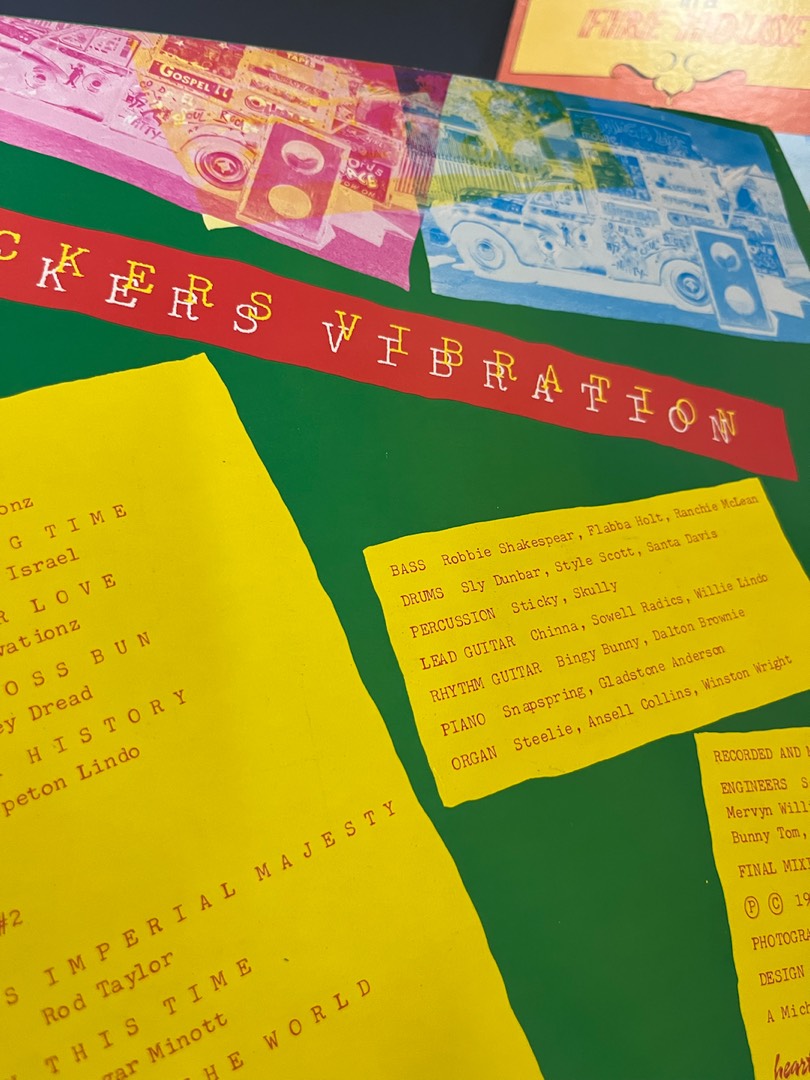 FIRE HOUSE
GOSPEL
CKERS VIBRATION
KERS VIBRATION
onz
G TIME
Israel
R LOVE
vationz
OSS BUN
ey Dread
HISTORY
peton Lindo
#2
S IMPERIAL MAJESTY
Rod Taylor
THIS TIME
gar Minott
HE WORLD
BASS Robbie Shakespear, Flabba Holt, Ranchie McLean
DRUMS Sly Dunbar, Style Scott, Santa Davis
PERCUSSION Sticky, Skully
LEAD GUITAR Chinna, Sowell Radics, Willie Lindo
RHYTHM GUITAR Bingy Bunny, Dalton Brownie
PIANO Snapspring, Gladstone Anderson
ORGAN Steelie, Ansell Collins, Winston Wright
RECORDED AND M
ENGINEERS S
Mervyn Will
Bunny Tom,
FINAL MIXI
Ⓟ © 19
PHOTOGRA
DESIGN
A Mich
heart